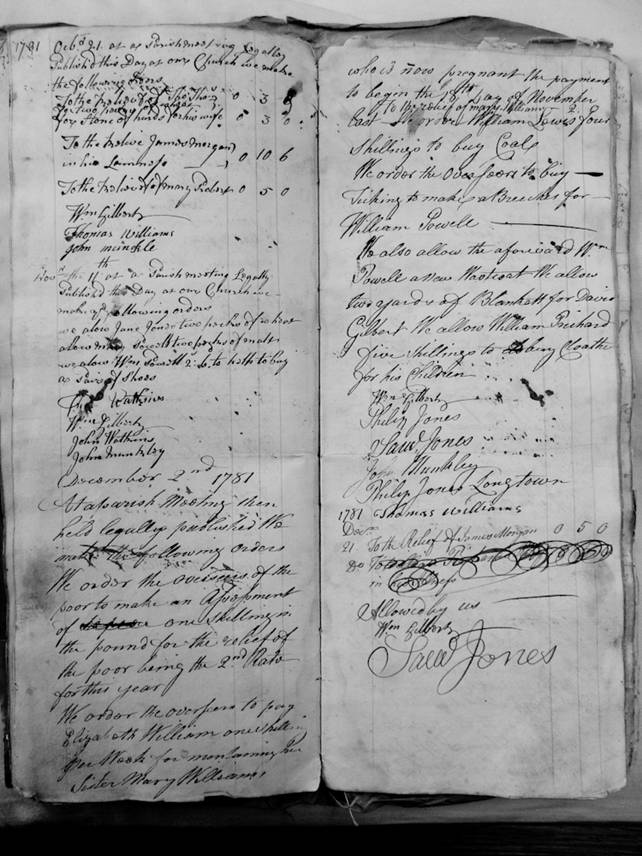 1781 Octbr 21 at a Parish meeting Legally
Published this Day at our Church we make
the following orders
To the relief of 0 3
for Stone of hurds for his wife 0 3 0
To the releve James Morgan
in his Lameness 0 10 6
To the releif of mary Probert 0 5 0
Wm Gilbert
Thomas Williams
John
Novr the 11th at a Parish meeting Legally
Published this Day at our Church we
make following orders
we alow Jane Jones two pecks of wheat
allow two pecks of malt
we alow Wm Powell to buy
a Pair of Shoes
Watkins
Wm Gilbert
John Watkins
John Munkley
December 2nd 1781
At a parish Meeting then
held legally published We
make the following orders
We order the overseers of the
poor to make an Assessment
of one Shilling in
the pound for the relief of
the poor being the 2nd Rate
for this year
We order the overseers to pay
Elizabeth William one shilling
per Week for mentaining her
Sister Mary Williams
who is now pregnant the payment
to begin the 18th day of November
to the relief of mary Williams 2
last We order William Lewis four
Shillings to buy Coals
We order the Overseers to buy
Ticking to make a Breeches for
William Powell
We also allow the aforesaid Wm
Powell a new Wastcoat We allow
two yards of Blankett for David
Gilbert We allow William Prichard
five shillings to buy Cloaths
for his Children
Wm Gilbert
Philip Jones
Saml Jones
John Munkley
Philip Jones Longtown
1781 Thomas Williams
Decr
21 To the Relief of James Morgan 0 5 0
30 To
in
Allowed by us
Wm Gilbert
Saml Jones